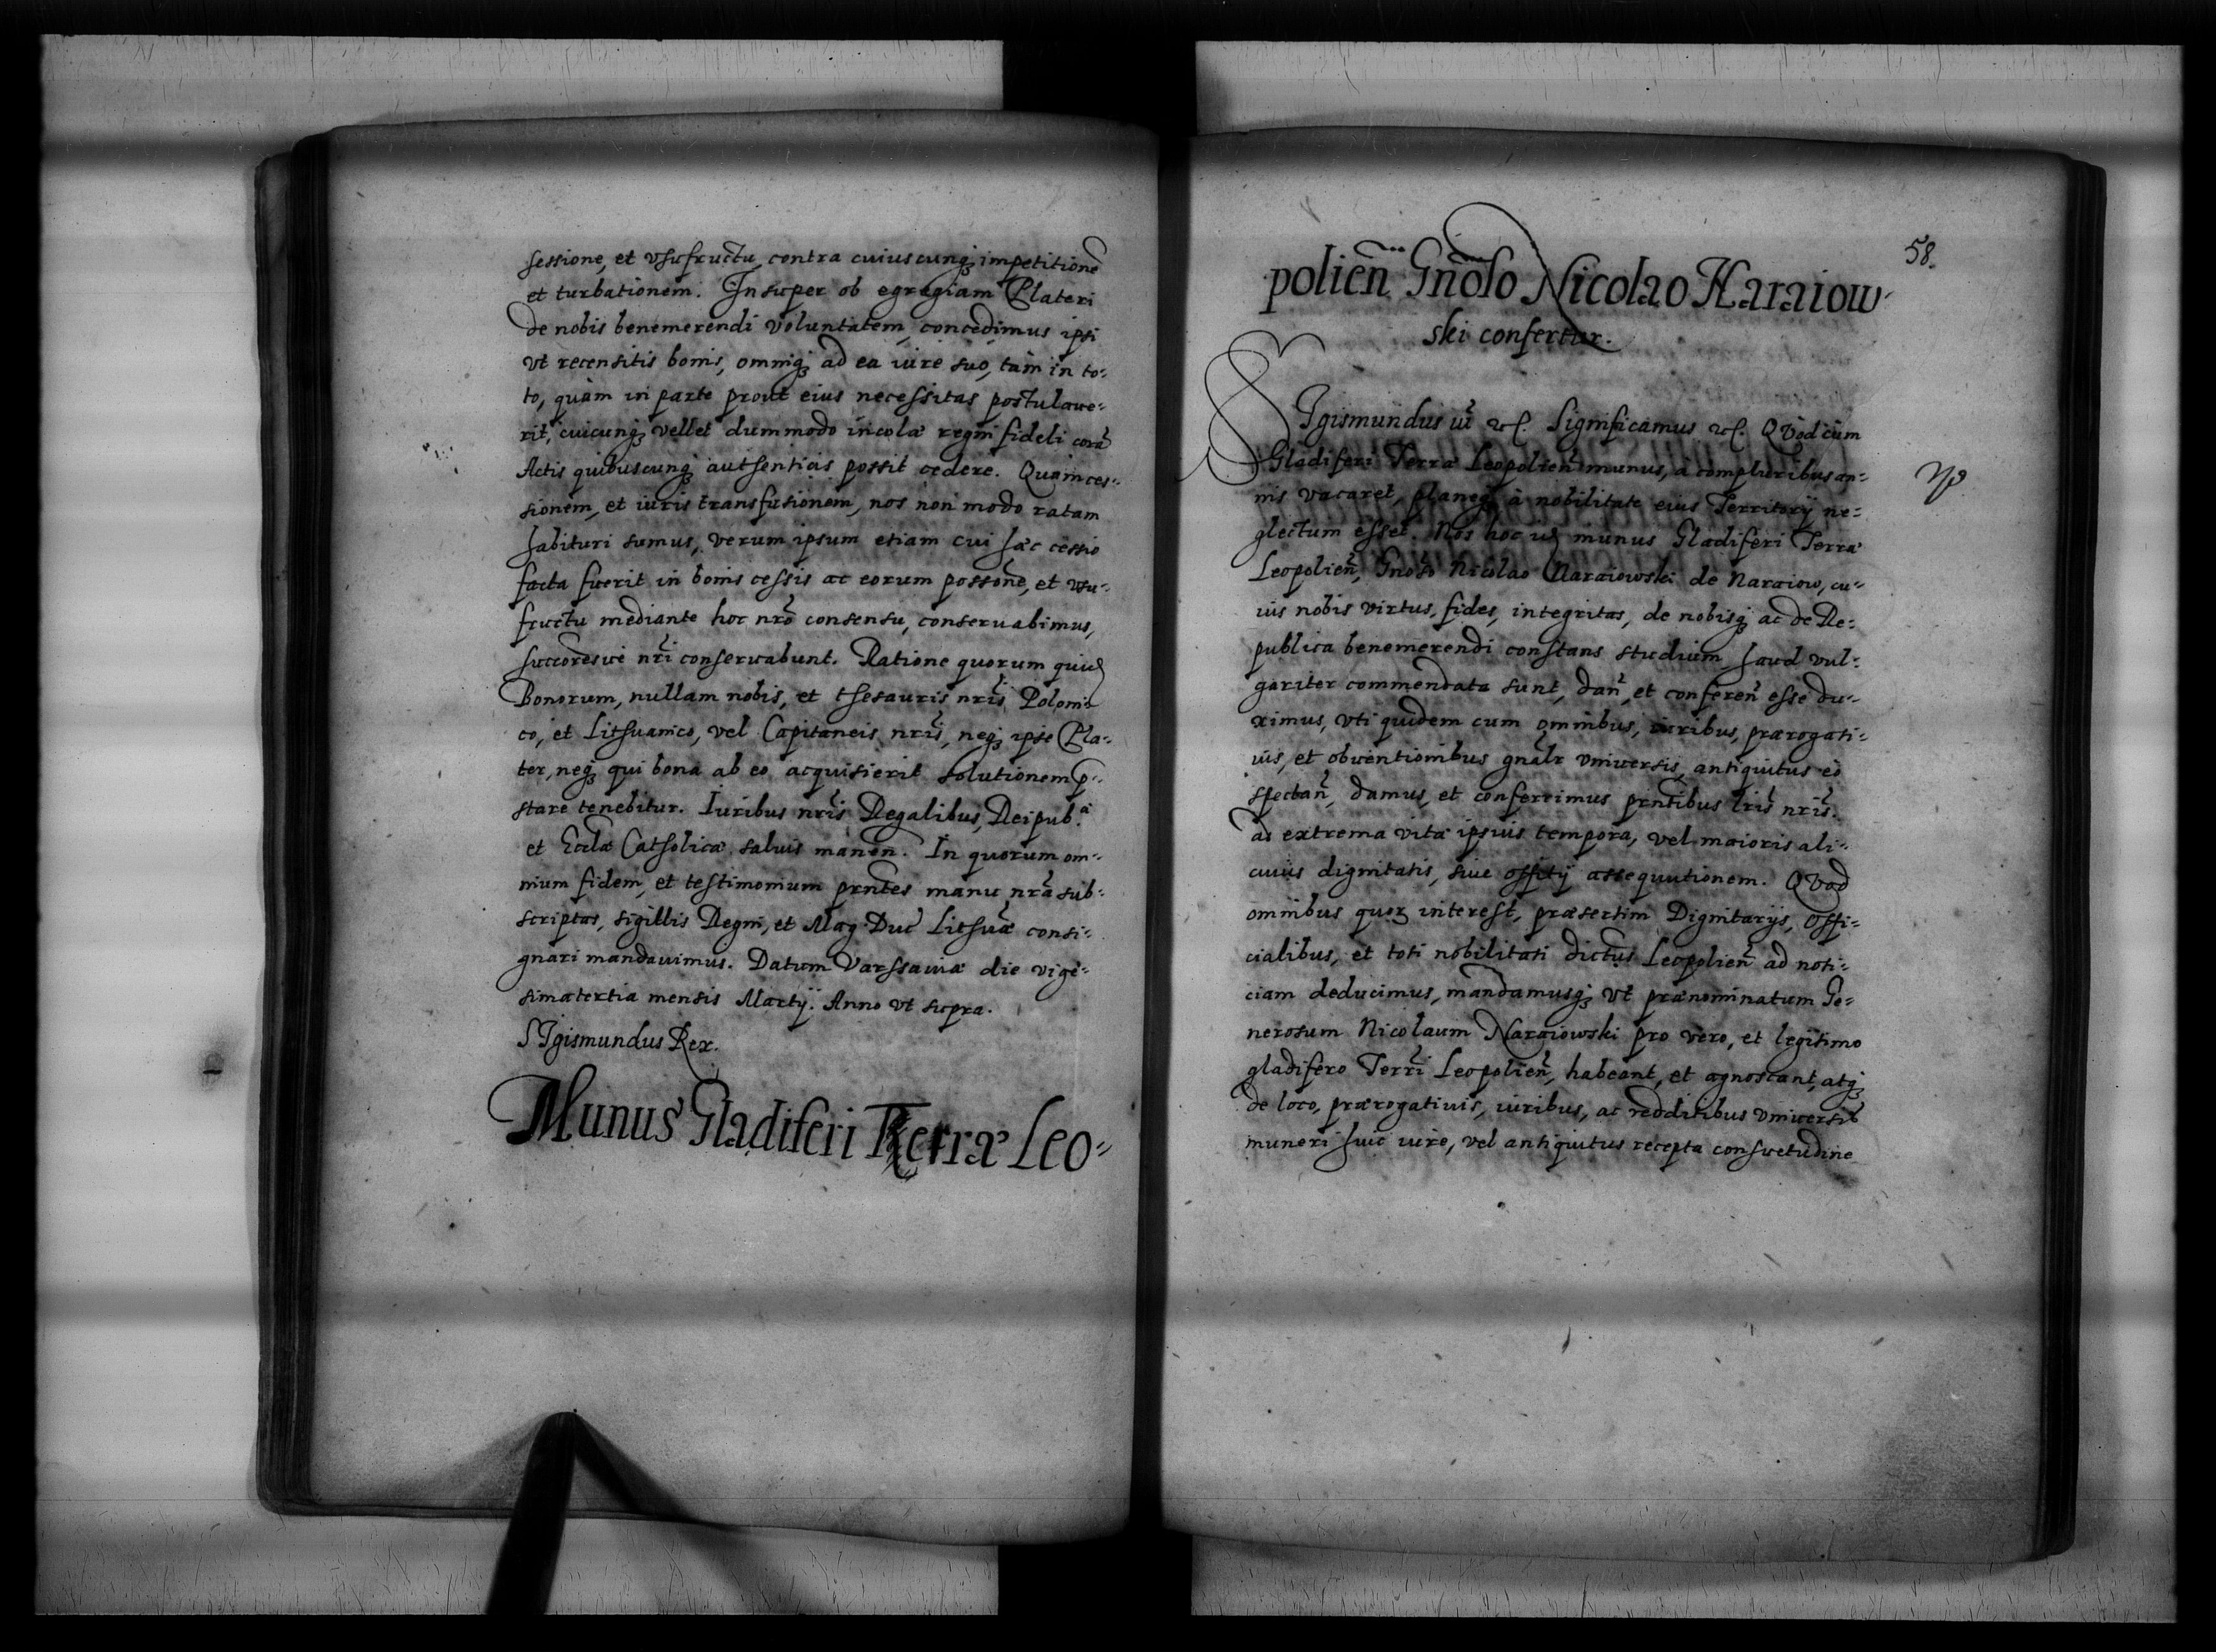 sessione, et vsufructu, contra cuiuscunq3 impetitionẽ
et turbationem. Insuper ob egregiam Plateri
de nobis benemerendi voluntatem, concedimus ipsi
vt recensitis bonis, omniq3 ad ea iure suo, tam in to-
to, quàm in parte prout eius necessitas postulaue-
rit, cuicunq3 vellet dummodo incolæ regni fideli corã
Actis quibuscunq3 authenticis possit cedere. Quam ces-
sionem, et iuris transfusionem, nos non modo ratam
habituri sumus, verum ipsum etiam cui hæc cessio
facta fuerit in bonis cessis ac eorum possoñe, et vsu-
fructu mediante hoc nrõ consensu, conseruabimus,
succoresvè nr̃i conseruabunt. Ratione quorum quid
Bonorum, nullam nobis, et thesauris nr̃is, Poloni-
co, et Lithuanico, vel Capitaneis nr̃is, neq3 ipse Pla-
ter, neq3 qui bona ab eo acquisierit solutionem p-
stare tenebitur. Iuribus nr̃is Regalibus, Reipub.
et Eccla Catholicæ saluis maneñ. In quorum om-
nium fidem, et testimonium prñtes manu nr̃a sub-
scriptas, sigillis Regni, et Mag Duc̃ Lithuæ consi-
gnari mandauimus. Datum Varssauiæ die vige-
simatertia mensis Martij. Anno vt supra.
SIgismundus Rex.
Munus Gladiferi Terræ Leo-
58.
polieñ Gnõso Nicolao Naraiow-
ski confertur.
SIgismundus iii &c. Significamus &c. QVod cùm
Gladiferi Terræ Leopolieñ munus, à compluribus an-
nis vacaret, planeq3 à nobilitate eius Territorij ne-
glectum esset. Nos hoc id munus Gladiferi Terræ
Leopolieñ, Gnoso Nicolao Naraiowski de Naraiow, cu-
ius nobis virtus, fides, integritas, de nobisq3 ac de Re-
publica benemerendi constans studium haud vul-
gariter commendata sunt, dañ, et confereñ esse du-
ximus, vti quidem cum omnibus, iuribus, prærogati-
uis, et obuentionibus gnãlr vniuersis, antiquitus eò
spectañ, damus, et conferrimus prñtibus lr̃is nr̃is.
ad extrema vitæ ipsius tempora, vel maioris ali-
cuius dignitatis, siue offitij assequutionem. QVod
omnibus quor interest, præsertim Dignitarijs, Offi-
cialibus, et toti nobilitati dictus Leopolieñ ad noti-
ciam deducimus, mandamusq3 vt prænominatum Ge-
nerosum Nicolaum Naraiowski pro vero, et legitimo
gladifero Terr̃i Leopolieñ, habeant, et agnoscant, atq3
de loco, prærogatiuis, iuribus, ac redditibus vniuersis
muneri huic iure, vel antiquitus recepta consuetudine